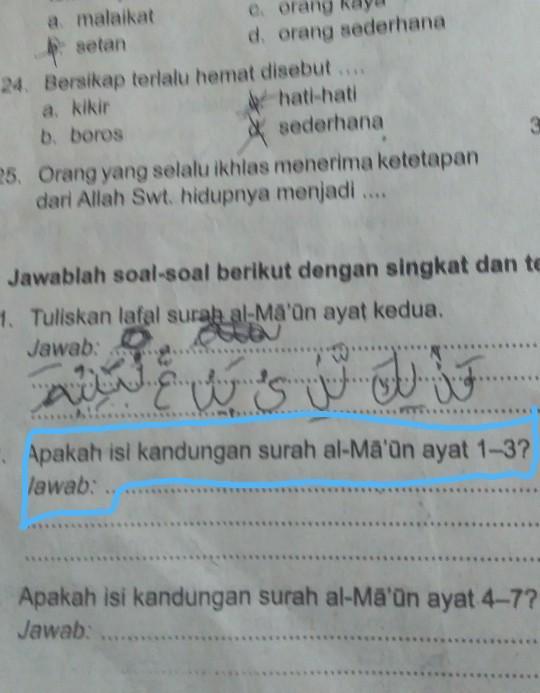 a. malaikat
c. orang kaya
b. setan
d. orang sederhana
24. Bersikap terlalu hemat disebut ....
a. kikir
hati-hati
b. boros
d. sederhana
25. Orang yang selalu ikhlas menerima ketetapan
dari Allah Swt. hidupnya menjadi ....
3
Jawablah soal-soal berikut dengan singkat dan te
1. Tuliskan lafal surah al-Mā'ūn ayat kedua.
Jawab:
. Apakah isi kandungan surah al-Mā'ūn ayat 1–3?
Jawab:
Apakah isi kandungan surah al-Mā'ūn ayat 4–7?
Jawab: